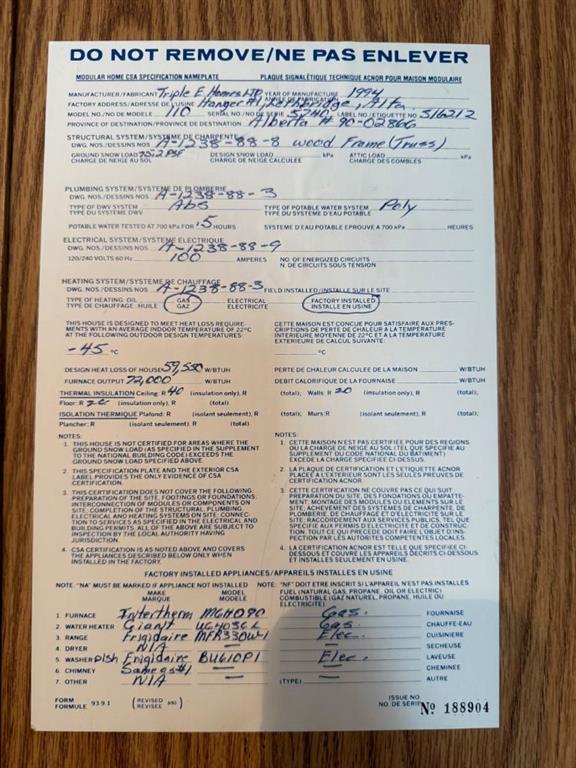 DO NOT REMOVE/NE PAS ENLEVER
MODULAR HOME CSA SPECIFICATION NAMEPLATE PLAQUE SIGNALÉTIQUE TECHNIQUE ACNOR POUR MAISON MODULAIRE
MANUFACTURER/FABRICANT Triple E Homes LTD. YEAR OF MANUFACTURE 1994
FACTORY ADDRESS/ADRESSE DE L'USINE Hanger #1, Lethbridge, Alta.
MODEL NO./NO DE MODELE 110 SERIAL NO./NO DE SERIE LABEL NO./ETIQUETTE NO 516212
PROVINCE OF DESTINATION/PROVINCE DE DESTINATION Alberta # 90-02866
STRUCTURAL SYSTEM/SYSTEME DE CHARPENTE
DWG. NOS./DESSINS NOS A-1238-88-8 wood Frame (Truss)
GROUND SNOW LOAD PSF DESIGN SNOW LOAD kPa ATTIC LOAD kPa
CHARGE DE NEIGE AU SOL CHARGE DE NEIGE CALCULEE CHARGE DES COMBLES
PLUMBING SYSTEM/SYSTEME DE PLOMBERIE
DWG. NOS./DESSINS NOS A-1238-88-3
TYPE OF DWV SYSTEM Abs TYPE OF POTABLE WATER SYSTEM Poly
TYPE DU SYSTEME DWV TYPE DU SYSTEME D'EAU POTABLE
POTABLE WATER TESTED AT 700 kPa FOR .5 HOURS SYSTEME D'EAU POTABLE EPROUVE A 700 kPa HEURES
ELECTRICAL SYSTEM/SYSTEME ELECTRIQUE
DWG. NOS./DESSINS NOS A-1238-88-9
120/240 VOLTS 60 Hz 100 AMPERES NO. OF ENERGIZED CIRCUITS
N. DE CIRCUITS SOUS TENSION
HEATING SYSTEM/SYSTEME DE CHAUFFAGE
DWG. NOS./DESSINS NOS A-1238-88-3 FIELD INSTALLED/INSTALLE SUR LE SITE
TYPE OF HEATING: OIL GAS ELECTRICAL FACTORY INSTALLED
TYPE DE CHAUFFAGE: HUILE GAZ ELECTRICITE INSTALLE EN USINE
THIS HOUSE IS DESIGNED TO MEET HEAT LOSS REQUIRE-
MENTS WITH AN AVERAGE INDOOR TEMPERATURE OF 22°C
AT THE FOLLOWING OUTDOOR DESIGN TEMPERATURES:
-45 °C
CETTE MAISON EST CONCUE POUR SATISFAIRE AUX PRES-
CRIPTIONS DE PERTE DE CHALEUR A LA TEMPERATURE
INTERIEURE MOYENNE DE 22°C ET A LA TEMPERATURE
EXTERIEURE DE CALCUL SUIVANTE:
°C
DESIGN HEAT LOSS OF HOUSE 59,550 W/BTUH PERTE DE CHALEUR CALCULEE DE LA MAISON W/BTUH
FURNACE OUTPUT 72,000 W/BTUH DEBIT CALORIFIQUE DE LA FOURNAISE W/BTUH
THERMAL INSULATION Ceiling: R 40 (insulation only), R (total); Walls: R 20 (insulation only), R (total);
Floor: R (insulation only), R (total)
ISOLATION THERMIQUE Plafond: R (isolant seulement), R (total); Murs: R (isolant seulement), R (total);
Plancher: R (isolant seulement), R (total)
NOTES:
1. THIS HOUSE IS NOT CERTIFIED FOR AREAS WHERE THE
GROUND SNOW LOAD (AS SPECIFIED IN THE SUPPLEMENT
TO THE NATIONAL BUILDING CODE) EXCEEDS THE
GROUND SNOW LOAD SPECIFIED ABOVE.
2. THIS SPECIFICATION PLATE AND THE EXTERIOR CSA
LABEL PROVIDES THE ONLY EVIDENCE OF CSA
CERTIFICATION.
3. THIS CERTIFICATION DOES NOT COVER THE FOLLOWING:
PREPARATION OF THE SITE, FOOTINGS OR FOUNDATIONS,
INTERCONNECTION OF MODULES OR COMPONENTS ON
SITE; COMPLETION OF THE STRUCTURAL, PLUMBING,
ELECTRICAL AND HEATING SYSTEMS ON SITE; CONNEC-
TION TO SERVICES AS SPECIFIED IN THE ELECTRICAL AND
BUILDING PERMITS. ALL OF THE ABOVE ARE SUBJECT TO
INSPECTION BY THE LOCAL AUTHORITY HAVING
JURISDICTION.
4. CSA CERTIFICATION AS NOTED ABOVE AND COVERS
THE APPLIANCES DESCRIBED BELOW ONLY WHEN
INSTALLED IN THE FACTORY.
NOTES:
1. CETTE MAISON N'EST PAS CERTIFIEE POUR DES REGIONS
OU LA CHARGE DE NEIGE AU SOL (TEL QUE SPECIFIE AU
SUPPLEMENT DU CODE NATIONAL DU BÂTIMENT)
EXCEDE LA CHARGE SPECIFIEE CI-DESSUS.
2. LA PLAQUE DE CERTIFICATION ET L'ETIQUETTE ACNOR
PLACEE A L'EXTERIEUR SONT LES SEULES PREUVES DE
CERTIFICATION ACNOR.
3. CETTE CERTIFICATION NE COUVRE PAS CE QUI SUIT:
PREPARATION DU SITE, DES FONDATIONS OU EMPATTE-
MENT; MONTAGE DES MODULES OU ELEMENTS SUR LE
SITE; ACHEVEMENT DES SYSTEMES DE CHARPENTE, DE
PLOMBERIE DE CHAUFFAGE ET D'ELECTRICITE SUR LE
SITE; RACCORDEMENT AUX SERVICES PUBLICS, TEL QUE
SPECIFIE AUX PERMIS D'ELECTRICITE ET DE CONSTRUC-
TION. TOUT CE QUI PRECEDE DOIT FAIRE L'OBJET D'INS-
PECTION PAR LES AUTORITES COMPETENTES LOCALES.
4. LA CERTIFICATION ACNOR EST TELLE QUE SPECIFIEE CI-
DESSUS ET COUVRE LES APPAREILS DECRITS CI-DESSOUS
ET INSTALLES SEULEMENT EN USINE.
FACTORY INSTALLED APPLIANCES/APPAREILS INSTALLES EN USINE
NOTE: "NA" MUST BE MARKED IF APPLIANCE NOT INSTALLED NOTE: "NF" DOIT ETRE INSCRIT SI L'APPAREIL N'EST PAS INSTALLES
MAKE MODEL FUEL (NATURAL GAS, PROPANE, OIL OR ELECTRIC)
MARQUE MODELE COMBUSTIBLE (GAZ NATUREL, PROPANE, HUILE OU
ELECTRICITE)
1. FURNACE Intertherm MGH090 Gas. FOURNAISE
2. WATER HEATER Giant Gas. CHAUFFE-EAU
3. RANGE Frigidaire Elec. CUISINIERE
4. DRYER N/A — — SECHEUSE
5. WASHER Dish Frigidaire BU610P1 Elec. LAVEUSE
6. CHIMNEY Same as #1 — — CHEMINEE
7. OTHER N/A — (TYPE) AUTRE
FORM
FORMULE 93.9.1 (REVISED
REVISEE)
ISSUE NO.
NO. DE SERIE Nº 188904